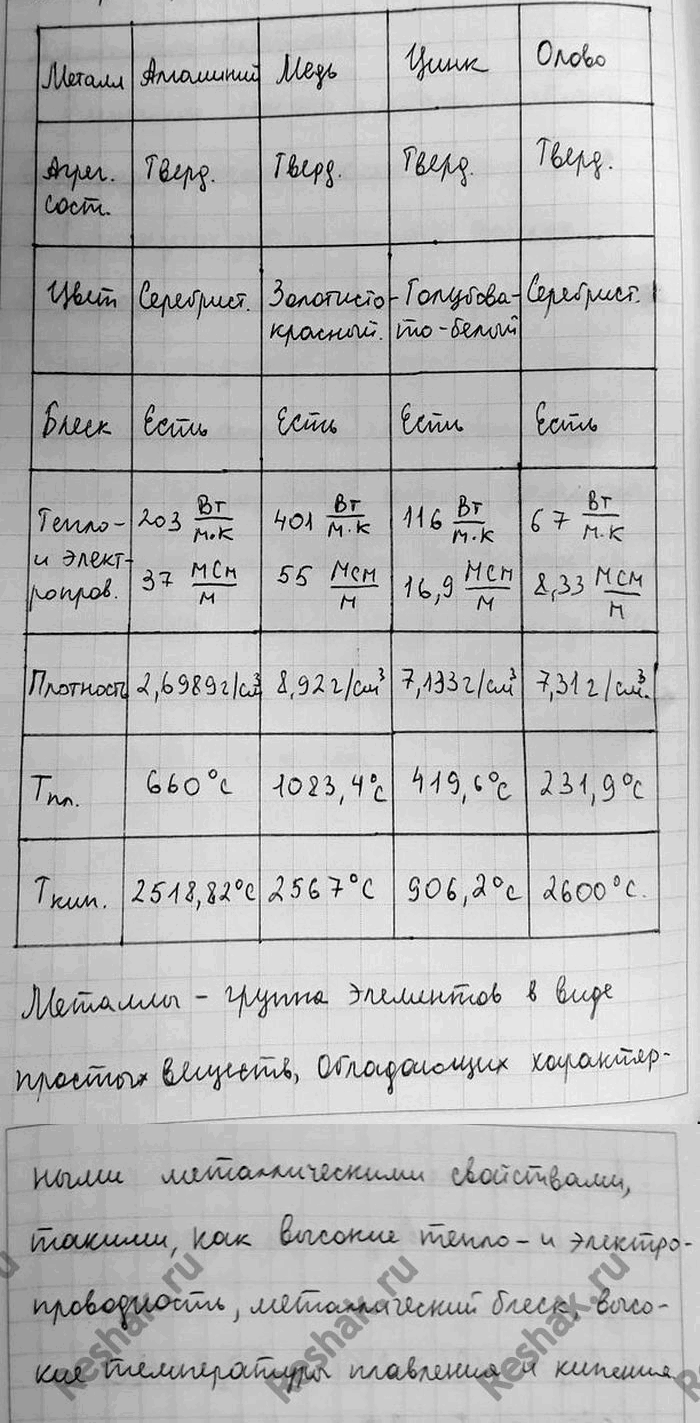 Металл Алюминий Медь Цинк Олово
Агрег. Тверд. Тверд. Тверд. Тверд.
сост.
Цвет Серебрист. Золотисто- Голубова- Серебрист.
красный. то-белый
Блеск Есть Есть Есть Есть
Тепло- 203 Вт/м·К 401 Вт/м·К 116 Вт/м·К 67 Вт/м·К
и элект-
ропров. 37 МСм/м 55 МСм/м 16,9 МСм/м 8,33 МСм/м
Плотность 2,6989г/см³ 8,92г/см³ 7,133г/см³ 7,31г/см³.
Тпл. 660°С 1083,4°С 419,6°С 231,9°С
Ткип. 2518,82°С 2567°С 906,2°С 2600°С.
Металлы - группа элементов в виде
простых веществ, обладающих характер-
ными металлическими свойствами,
такими, как высокие тепло- и электро-
проводность, металлический блеск, высо-
кие температуры плавления и кипения
Reshak.ru
Reshak.ru
Reshak.ru